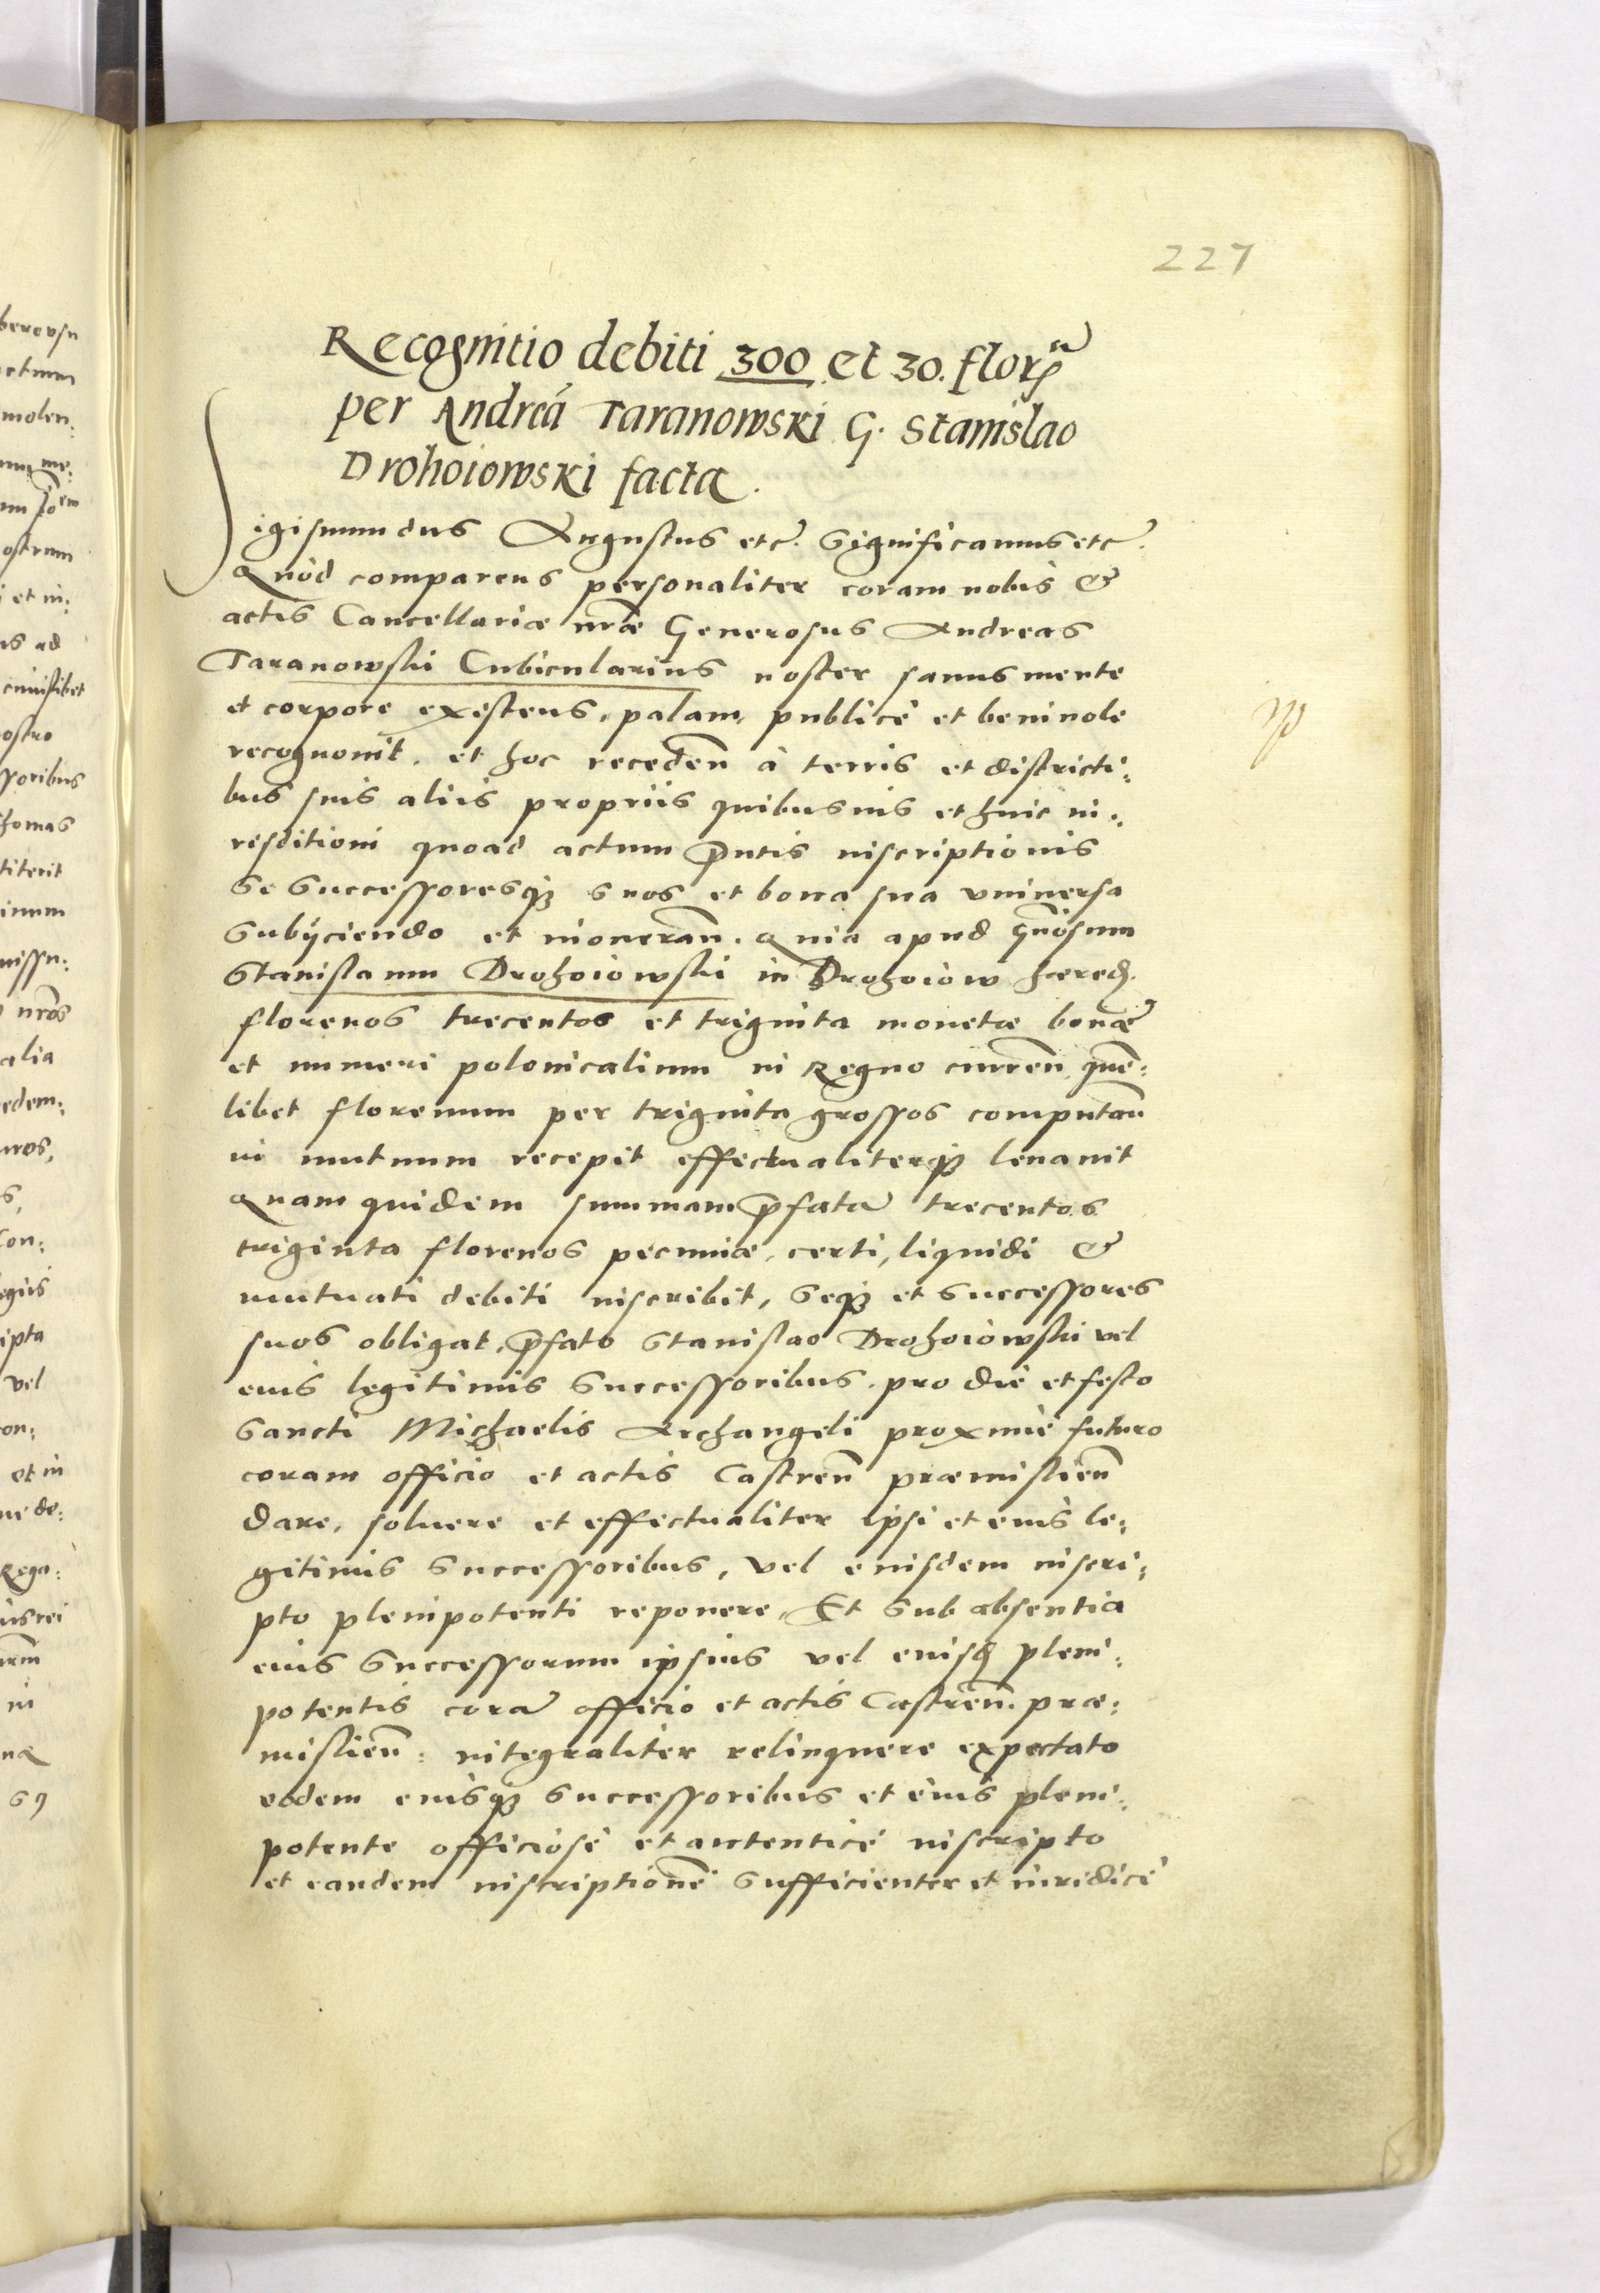 227
Recognitio debiti 300 et 30. flor
per Andreā Taranowski G. Stanislao
Drohoiowski facta.
Sigismundus Augustus etc. Significamus etc.
Quòd comparens personaliter coram nobis &
actis Cancellariæ nrãe Generosus Andreas
Taranowski Cubicularius noster sanus mente
et corpore existens, palam, publicè et beniuole
recognouit, et hoc recedeñ à terris et districti:
bus suis aliis propriis quibusuis et huic iu:
risditioni quoad actum p̃ntis inscriptionis
se successoresq́ȝ suos et bona sua vniuersa
subijciendo et inonerañ. Quia apud gñosum
Stanislaum Drohoiowski in Drohoiow hæred.
florenos trecentos et triginta monetæ bonæ
et numeri polonicalium in Regno curreñ quẽ:
libet florenum per triginta grossos computañ
in mutuum recepit effectualiterqȝ leuauit
Quam quidem summam p̃fatā trecentos
triginta florenos pecuniæ, certi, liquidi &
mutuati debiti inscribit, seqȝ et successores
suos obligat, p̃fato Stanislao Drohoiowski vel
eius legitimis successoribus, pro die et festo
Sancti Michaelis Archangeli proximè futuro
coram officio et actis Castreñ præmislieñ
dare, soluere et effectualiter ipsi et eius le:
gitimis successoribus, vel eiusdem inscri:
pto plenipotenti reponere, Et sub absentia
eius successorum ipsius vel eiusd pleni:
potentis corā officio et actis Castreñ. præ:
mislieñ: integraliter relinquere expectato
eodem eiusqȝ successoribus et eius pleni:
potente officiosè et autenticè inscripto
et eandem inscriptionẽ sufficienter et iuridicè